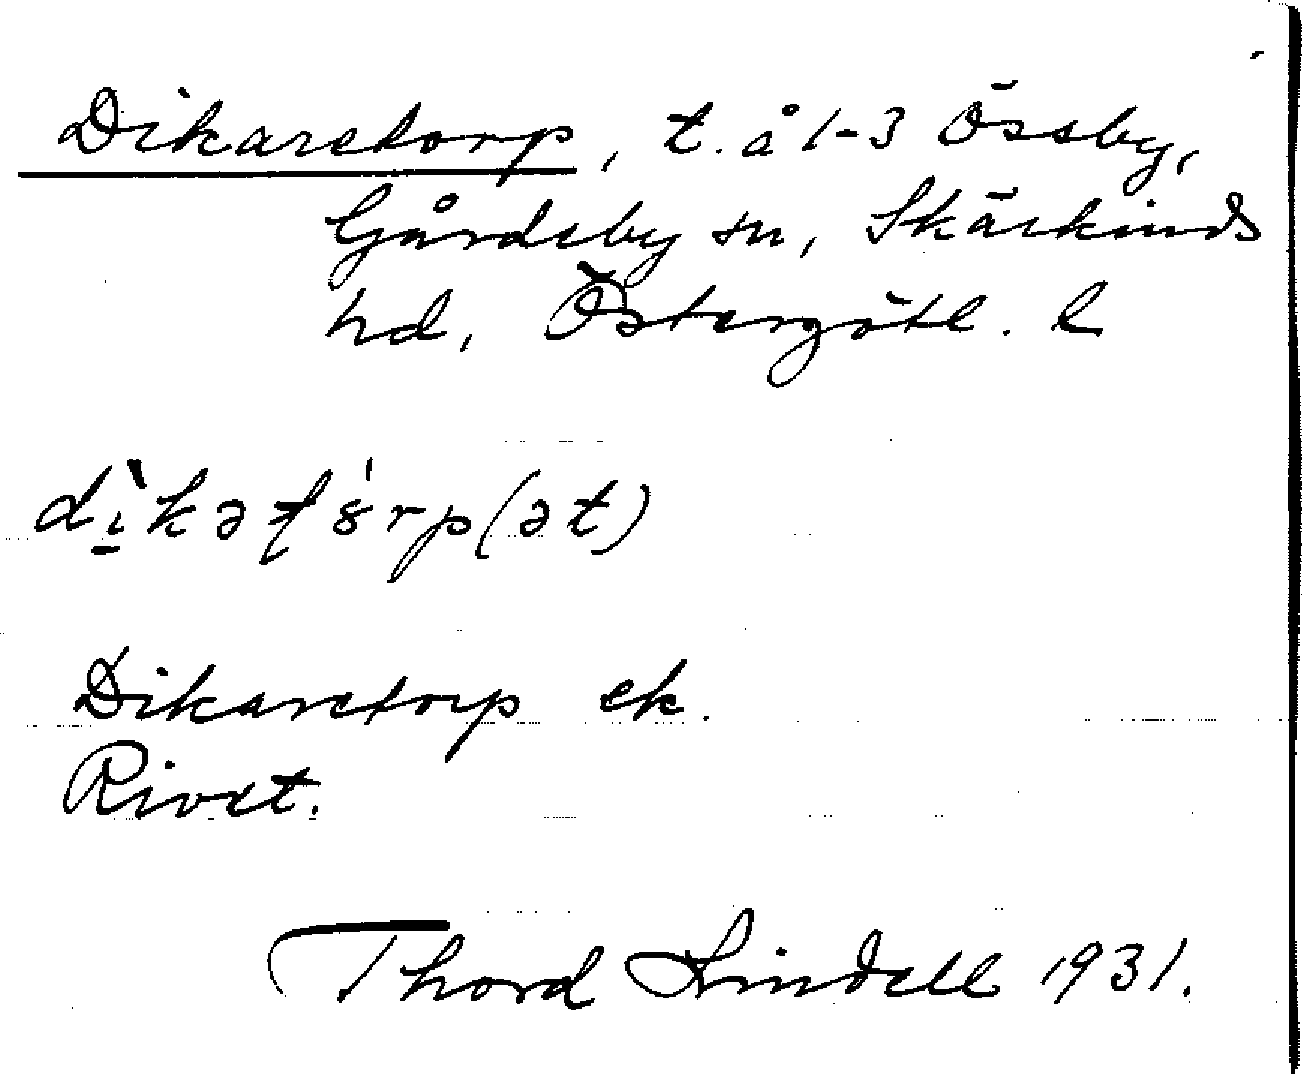 Dikarstorp, t. å 1-3 Össby,
Gårdeby sn, Skärkinds
hd, Östergötl. l
Dikarstorp ek.
Rivet.
Thord Lindell 1931.